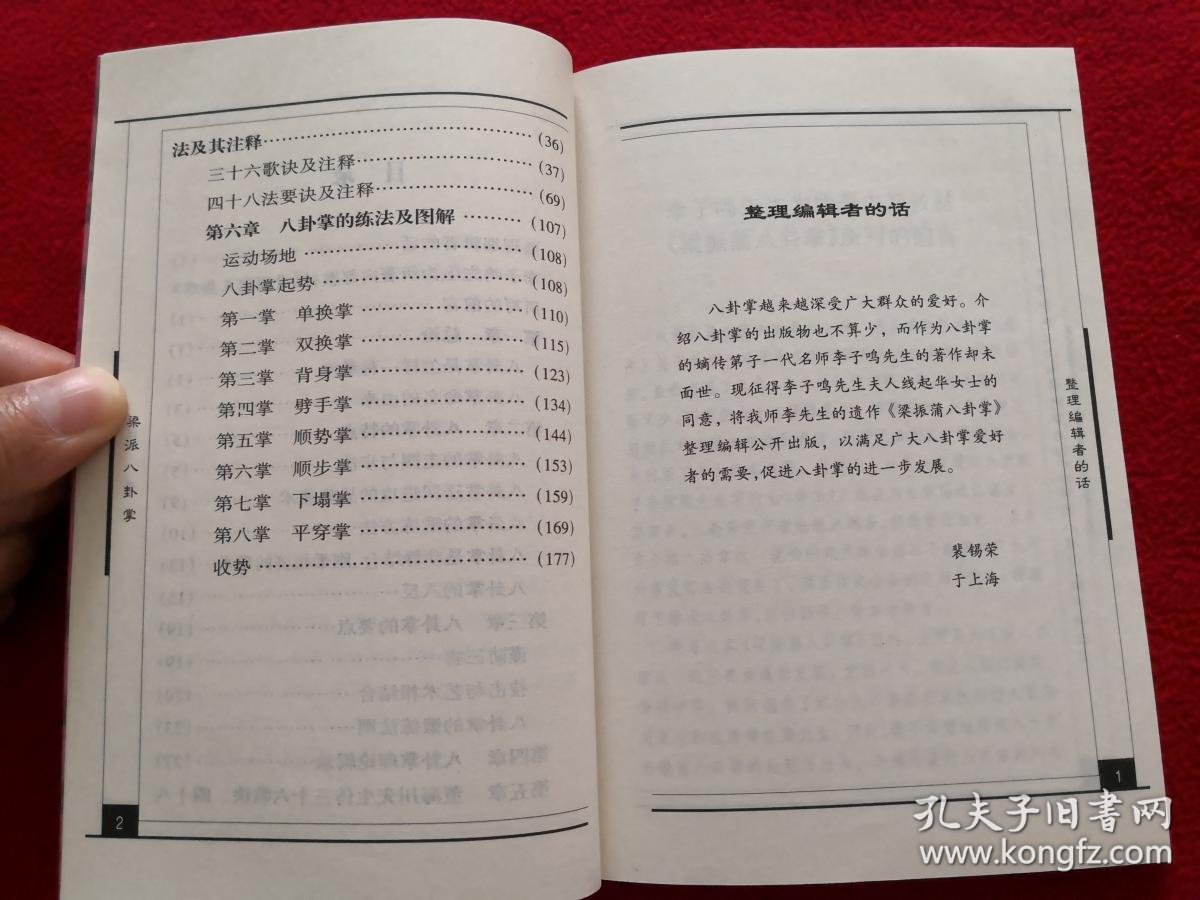 法及其注释……(36)
三十六歌诀及注释……(37)
四十八法要诀及注释……(69)
第六章 八卦掌的练法及图解……(107)
运动场地……(108)
八卦掌起势……(108)
第一掌 单换掌……(110)
第二掌 双换掌……(115)
第三掌 背身掌……(123)
第四掌 劈手掌……(134)
第五掌 顺势掌……(144)
第六掌 顺步掌……(153)
第七掌 下塌掌……(159)
第八掌 平穿掌……(169)
收势……(177)
梁派八卦掌
2
整理编辑者的话
八卦掌越来越深受广大群众的爱好。介
绍八卦掌的出版物也不算少，而作为八卦掌
的嫡传第子一代名师李子鸣先生的著作却未
面世。现征得李子鸣先生夫人线起华女士的
同意，将我师李先生的遗作《梁振蒲八卦掌》
整理编辑公开出版，以满足广大八卦掌爱好
者的需要，促进八卦掌的进一步发展。
裴锡荣
于上海
整理编辑者的话
1
孔夫子旧书网
www.kongfz.com